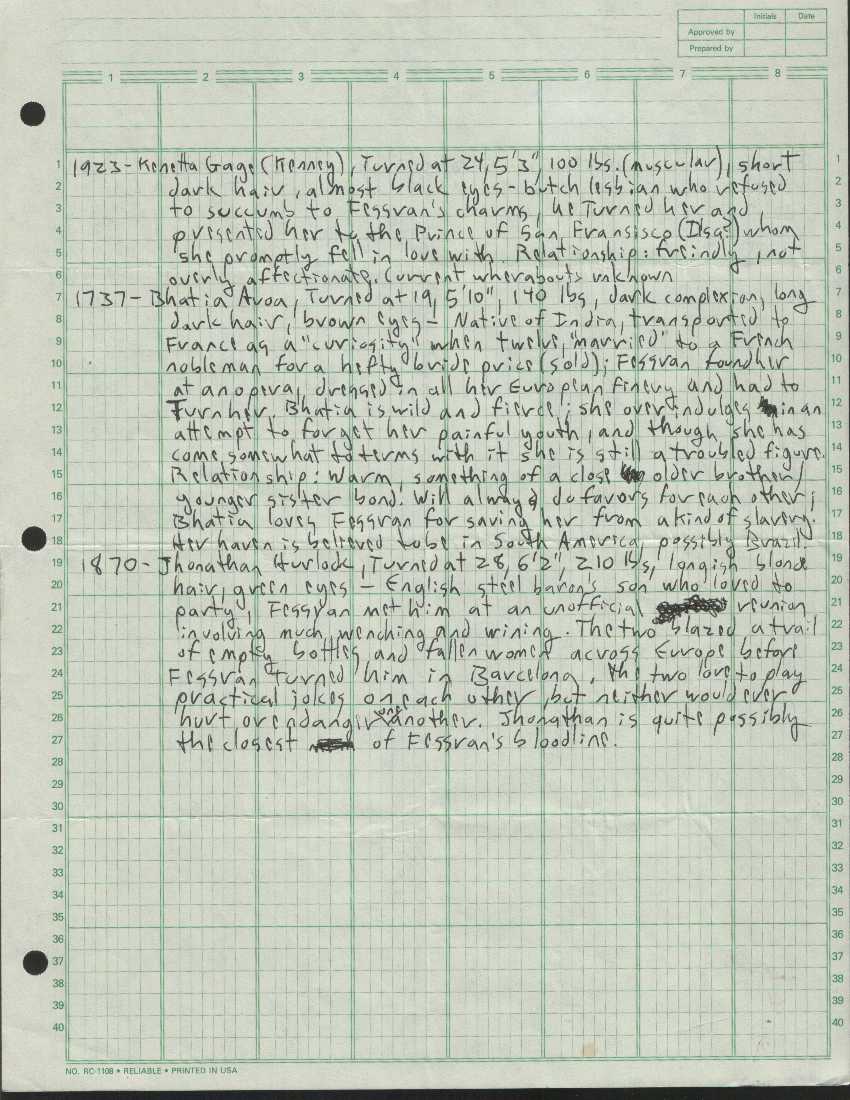 Initials Date
Approved by
Prepared by
1 2 3 4 5 6 7 8
1 1923 - Kenetta Gage (Kenney), Turned at 24, 5'3", 100 lbs. (muscular), short 1
2 dark hair, almost black eyes - butch lesbian who refused 2
3 to succumb to Fessran's charms, he Turned her and 3
4 presented her to the Prince of San Fransisco (Ilsa?) whom 4
5 she promptly fell in love with. Relationship: freindly, not 5
6 overly affectionate. Current wherabouts unknown 6
7 1737 - Bhatia Avoa, Turned at 19, 5'10", 140 lbs, dark complexion, long 7
8 dark hair, brown eyes - Native of India, transported to 8
9 France as a "curiosity" when twelve, "married" to a French 9
10 nobleman for a hefty bride price (sold); Fessran found her 10
11 at an opera, dressed in all her European finery and had to 11
12 Turn her. Bhatia is wild and fierce; she overindulges in an 12
13 attempt to forget her painful youth, and though she has 13
14 come somewhat to terms with it she is still a troubled figure. 14
15 Relationship: Warm, something of a close older brother/ 15
16 younger sister bond. Will always do favors for each other; 16
17 Bhatia loves Fessran for saving her from a kind of slavery. 17
18 Her haven is believed to be in South America, possibly Brazil. 18
19 1870 - Jhonathan Hurlock, Turned at 28, 6'2", 210 lbs, longish blonde 19
20 hair, green eyes - English steel baron's son who loved to 20
21 party, Fessran met him at an unofficial reunion 21
22 involving much wenching and wining. The two blazed a trail 22
23 of empty bottles and fallen women across Europe before 23
24 Fessran Turned him in Barcelona. The two love to play 24
25 practical jokes on each other, but neither would ever 25
26 hurt or endanger one another. Jhonathan is quite possibly 26
27 the closest of Fessran's bloodline. 27
28 28
29 29
30 30
31 31
32 32
33 33
34 34
35 35
36 36
37 37
38 38
39 39
40 40
NO. RC-1108 • RELIABLE • PRINTED IN USA